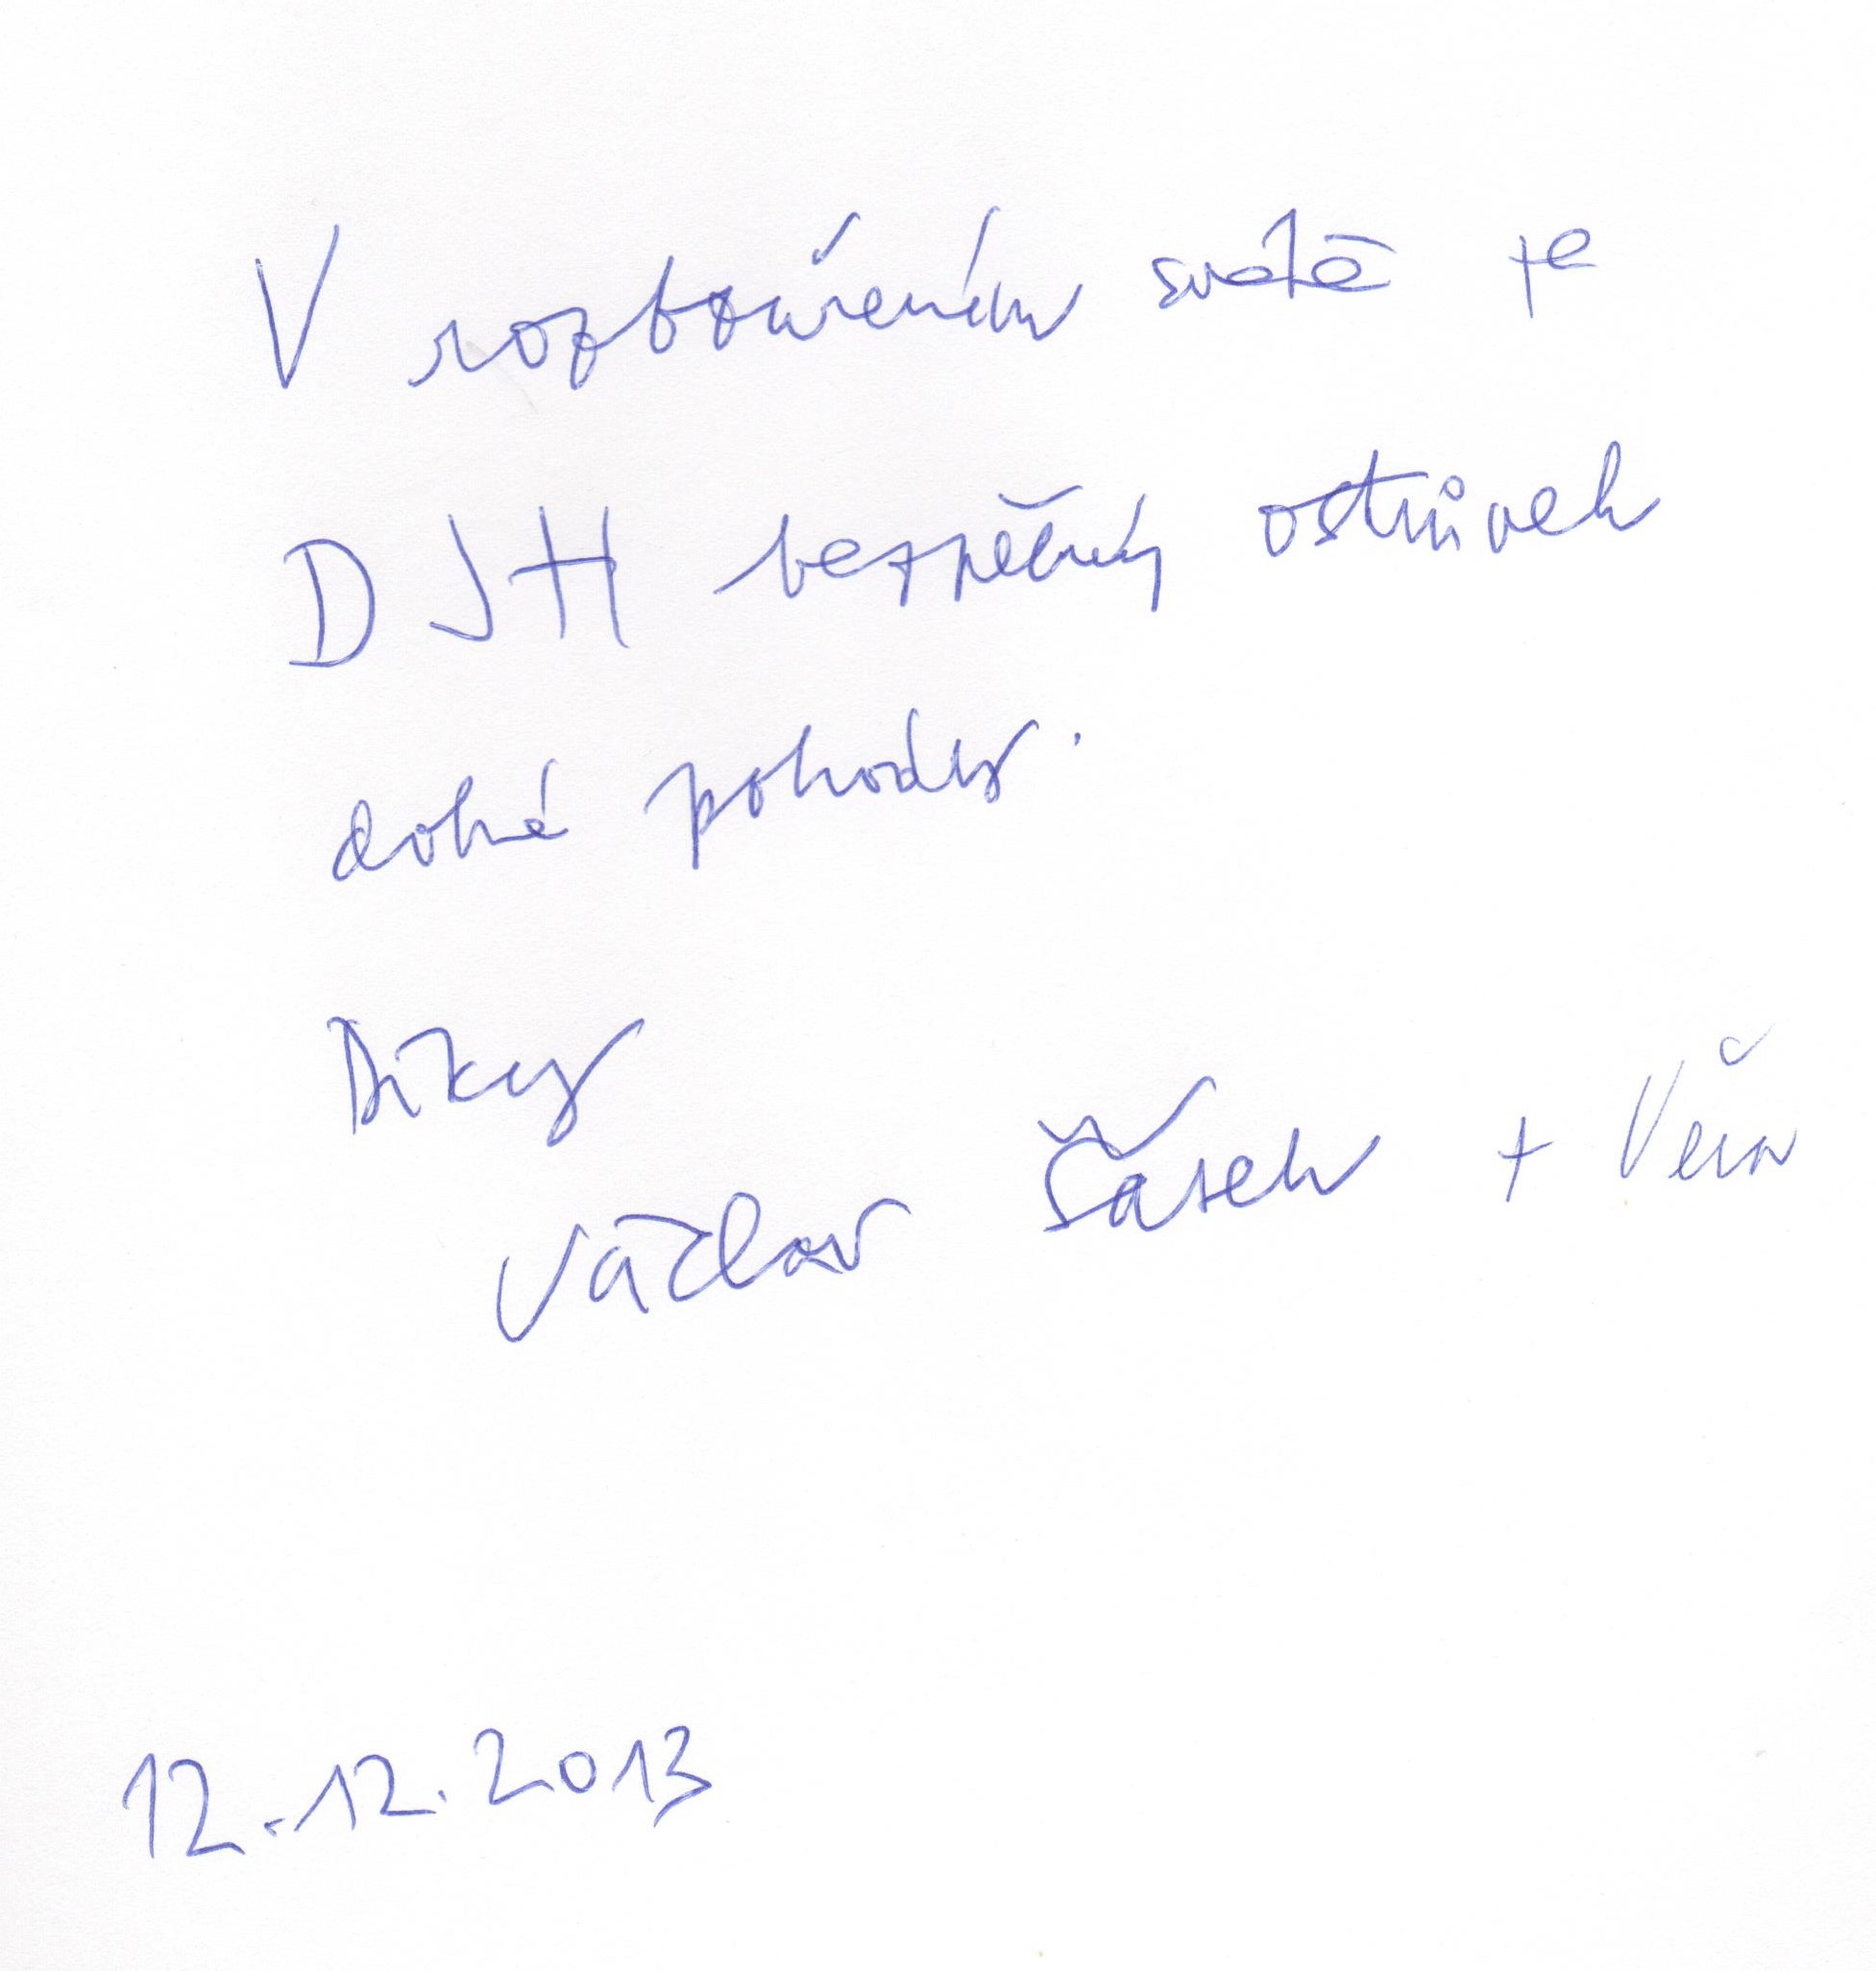 V rozbouřeném světě je
DJH bezpečný ostrůvek
dobré pohody.
Díky
Václav Šášek + Věra
12.12.2013